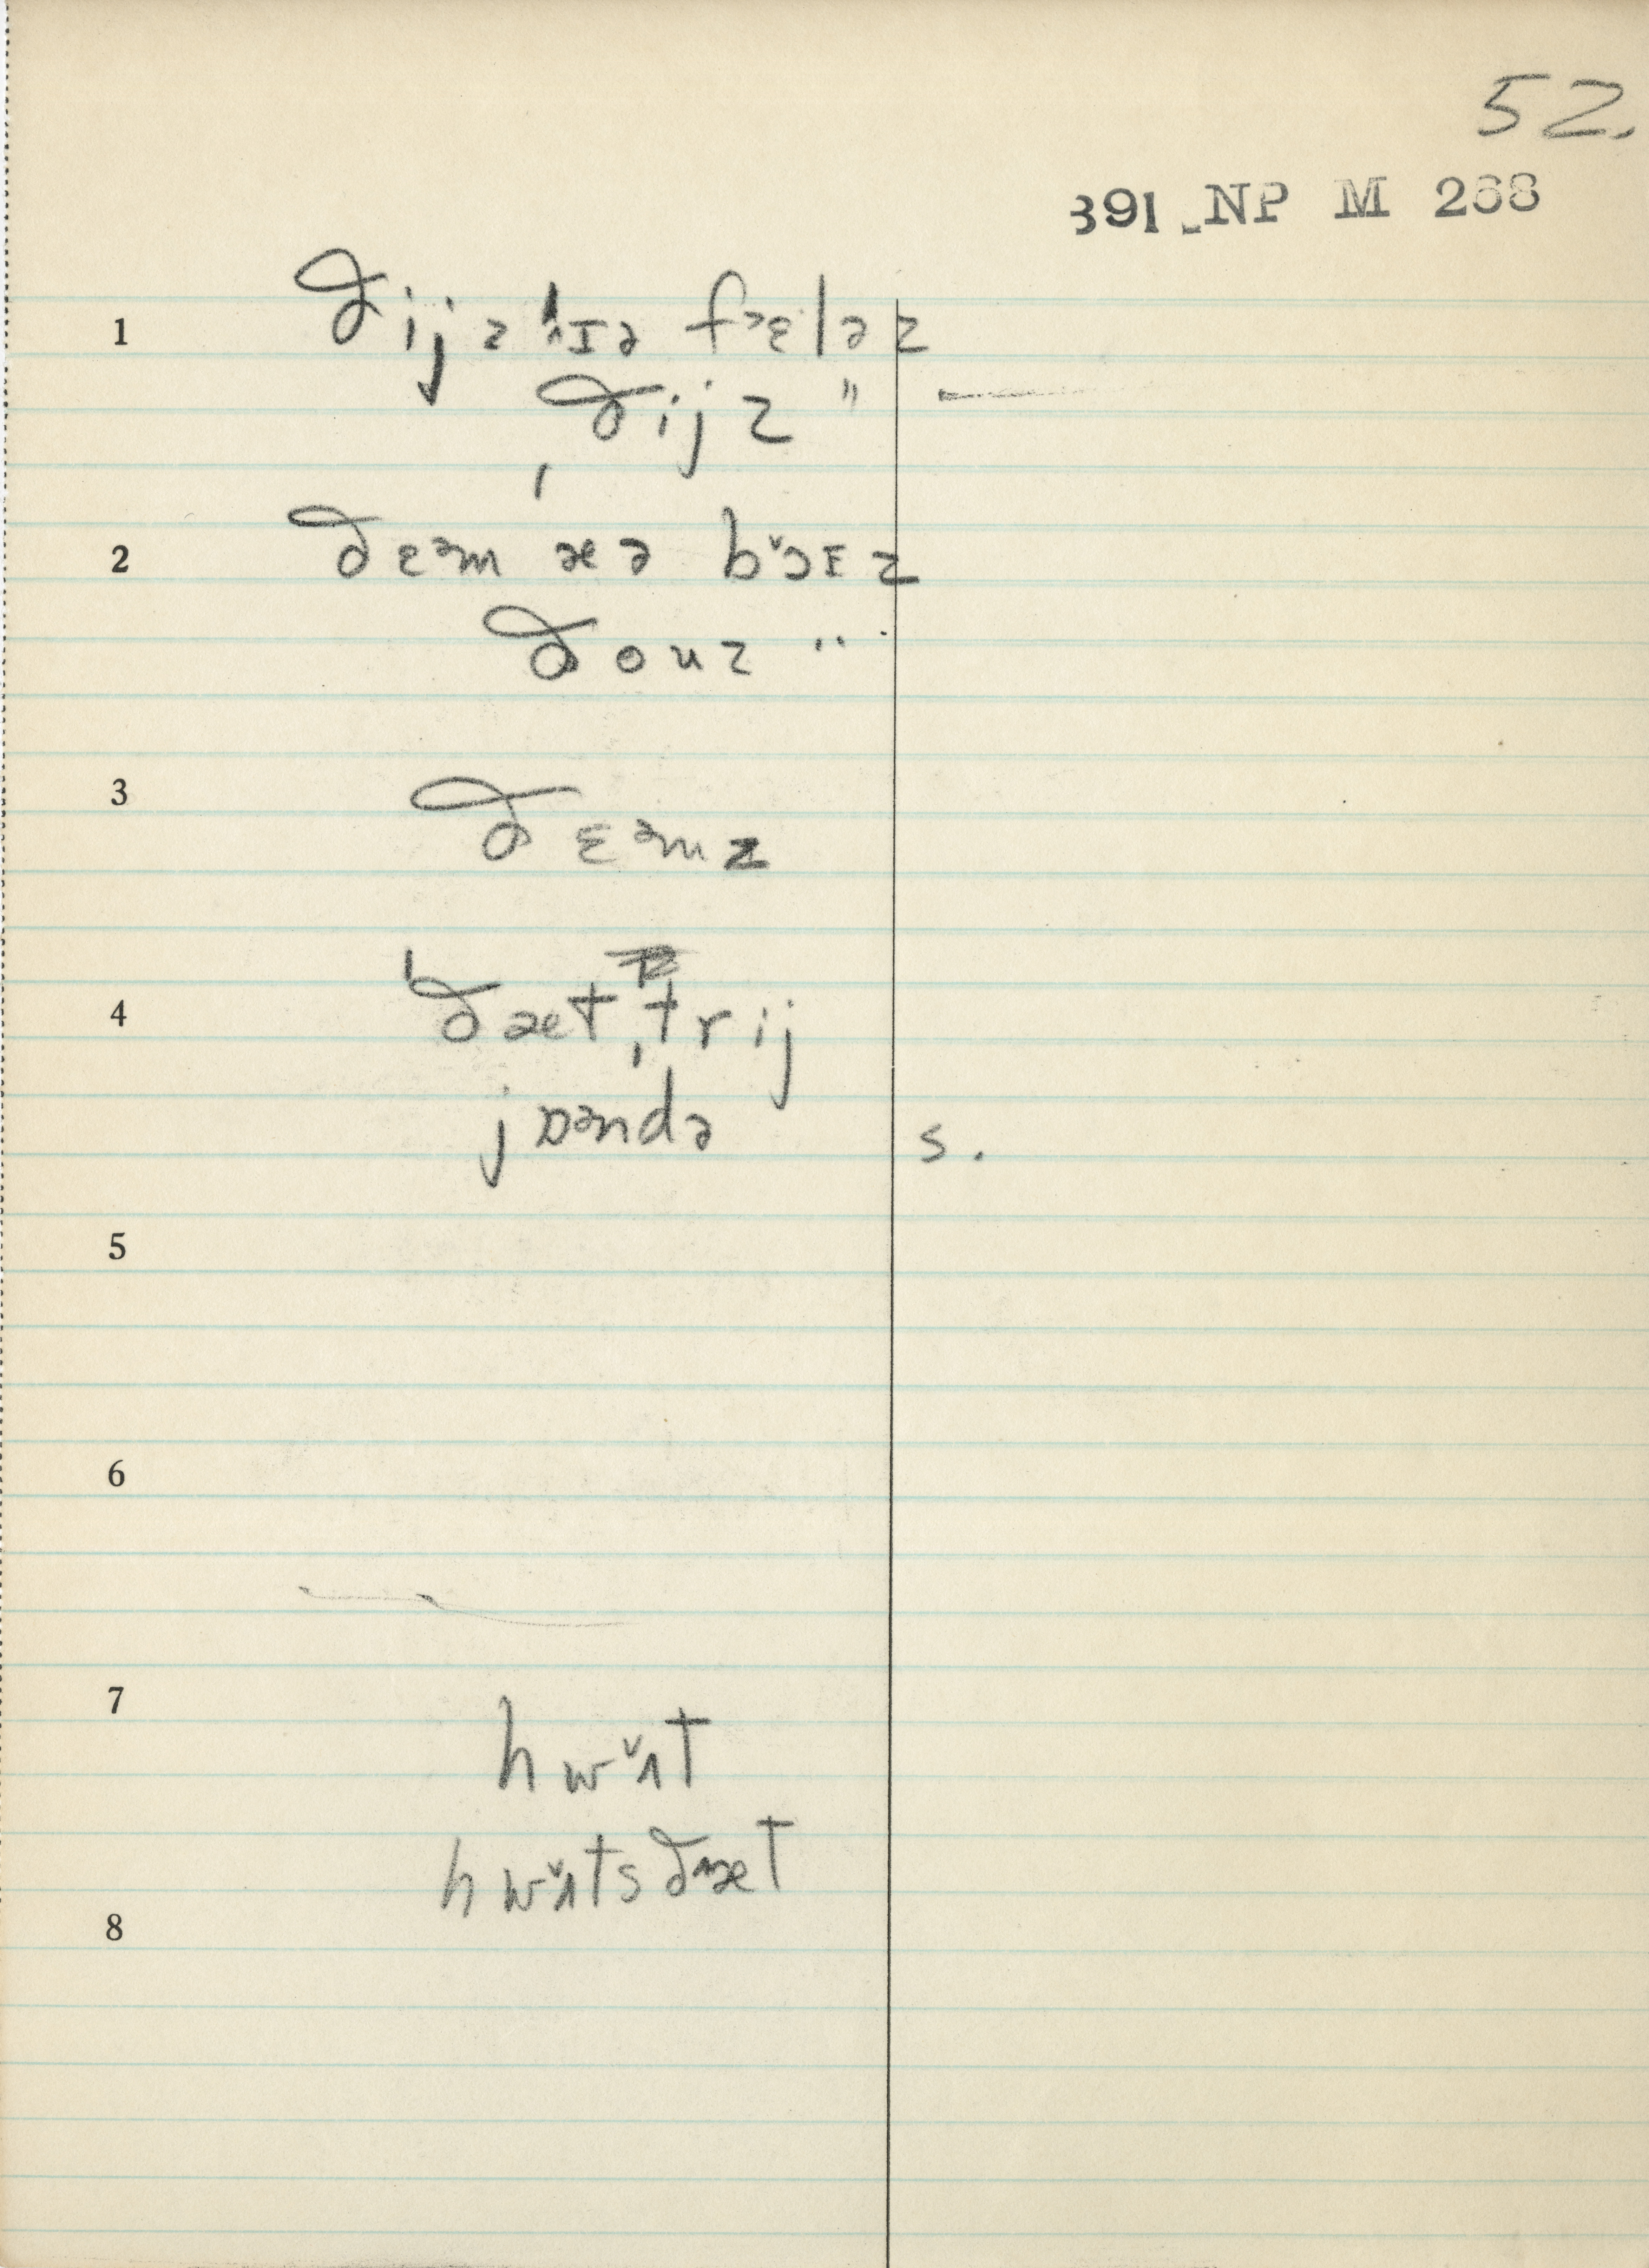 52.
391 NP M 268
1
ðijz ðijz "
2 ðɛᵊm æə bɔ̌ɪz
ðouz "
3
ðɛᵊmz
4 ðæt trij
jɒᵊndə s.
5
6
7
hwʌ̌t
hwʌ̌ts ðæt
8